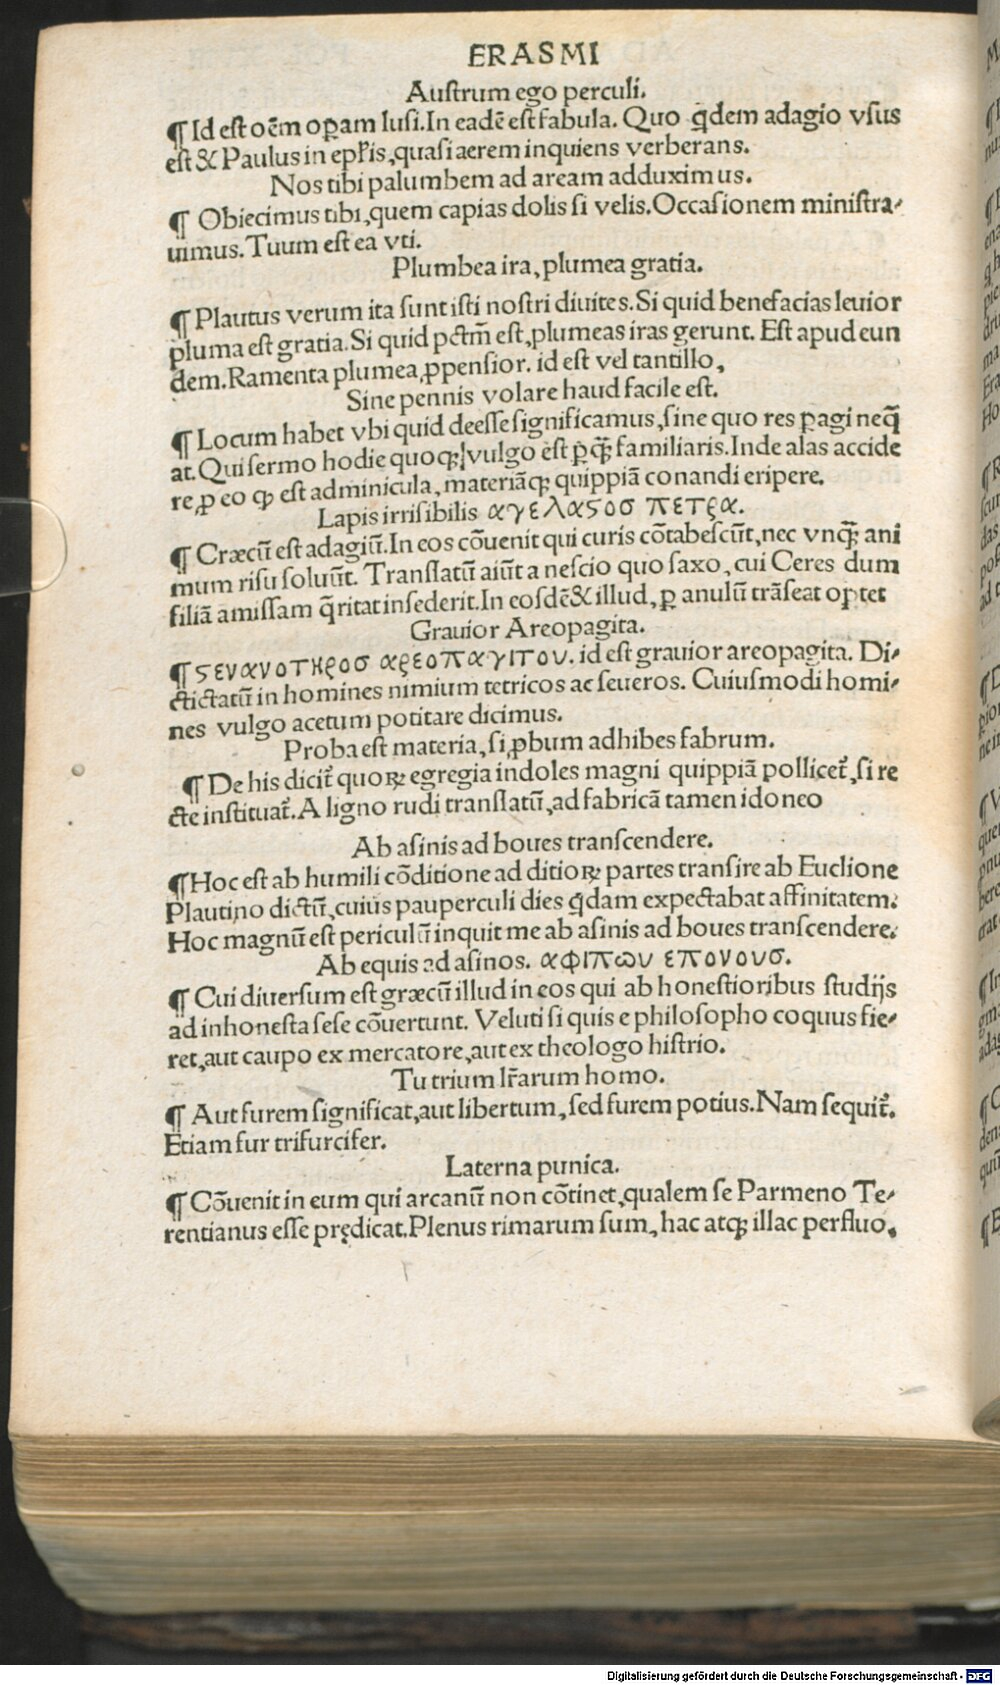 ERASMI
Auſtrum ego perculi.
¶ Id eſt oẽm oꝑam luſi.In eadẽ eſt fabula. Quo q̃dem adagio vſus
eſt & Paulus in epl̃is,quaſi aerem inquiens verberans.
Nos tibi palumbem ad aream adduximus.
¶ Obiecimus tibi,quem capias dolis ſi velis.Occaſionem miniſtra-
uimus.Tuum eſt ea vti.
Plumbea ira,plumea gratia.
¶ Plautus verum ita ſunt iſti noſtri diuites.Si quid benefacias leuior
pluma eſt gratia.Si quid pctm̃ eſt,plumeas iras gerunt. Eſt apud eun
dem.Ramenta plumea,ꝓpenſior. id eſt vel tantillo,
Sine pennis volare haud facile eſt.
¶ Locum habet vbi quid deeſſe ſignificamus,ſine quo res ꝑagi neq̃
at.Qui ſermo hodie quoqꝫ vulgo eſt ꝑq̃ꝫ familiaris.Inde alas accide
re,ꝓ eo ꝙ eſt adminicula,materiãqꝫ quippiã conandi eripere.
Lapis irriſibilis αγελαςοσ πετρα.
¶ Cræcũ eſt adagiũ.In eos cõuenit qui curis cõtabeſcũt,nec vnq̃ꝫ ani
mum riſu ſoluũt. Tranſlatũ aiũt a neſcio quo ſaxo,cui Ceres dum
filiã amiſſam q̃ritat inſederit.In eoſdẽ & illud,ꝑ anulũ trãſeat optet
Grauior Areopagita.
¶ ςενανοτκροσ αρεοπαγιτου.id eſt grauior areopagita. Di-
ctictatũ in homines nimium tetricos ac ſeueros. Cuiuſmodi homi-
nes vulgo acetum potitare dicimus.
Proba eſt materia,ſi ꝓbum adhibes fabrum.
¶ De his dicit᷑ quoꝝ egregia indoles magni quippiã pollicet᷑,ſi re
cte inſtituat᷑.A ligno rudi tranſlatũ,ad fabricã tamen idoneo
Ab aſinis ad boues tranſcendere.
¶ Hoc eſt ab humili cõditione ad ditioꝝ partes tranſire ab Euclione
Plautino dictũ,cuius pauperculi dies q̃dam expectabat affinitatem.
Hoc magnũ eſt periculũ inquit me ab aſinis ad boues tranſcendere.
Ab equis ad aſinos. αφιπων επονουσ.
¶ Cui diuerſum eſt græcũ illud in eos qui ab honeſtioribus ſtudijs
ad inhoneſta ſeſe cõuertunt. Veluti ſi quis e philoſopho coquus fie-
ret,aut caupo ex mercatore,aut ex theologo hiſtrio.
Tu trium lr̃arum homo.
¶ Aut furem ſignificat,aut libertum,ſed furem potius.Nam ſequit᷑.
Etiam fur trifurcifer.
Laterna punica.
¶ Cõuenit in eum qui arcanũ non cõtinet,qualem ſe Parmeno Te-
rentianus eſſe prędicat.Plenus rimarum ſum,hac atqꝫ illac perfluo.
Digitalisierung gefördert durch die Deutsche Forschungsgemeinschaft - DFG